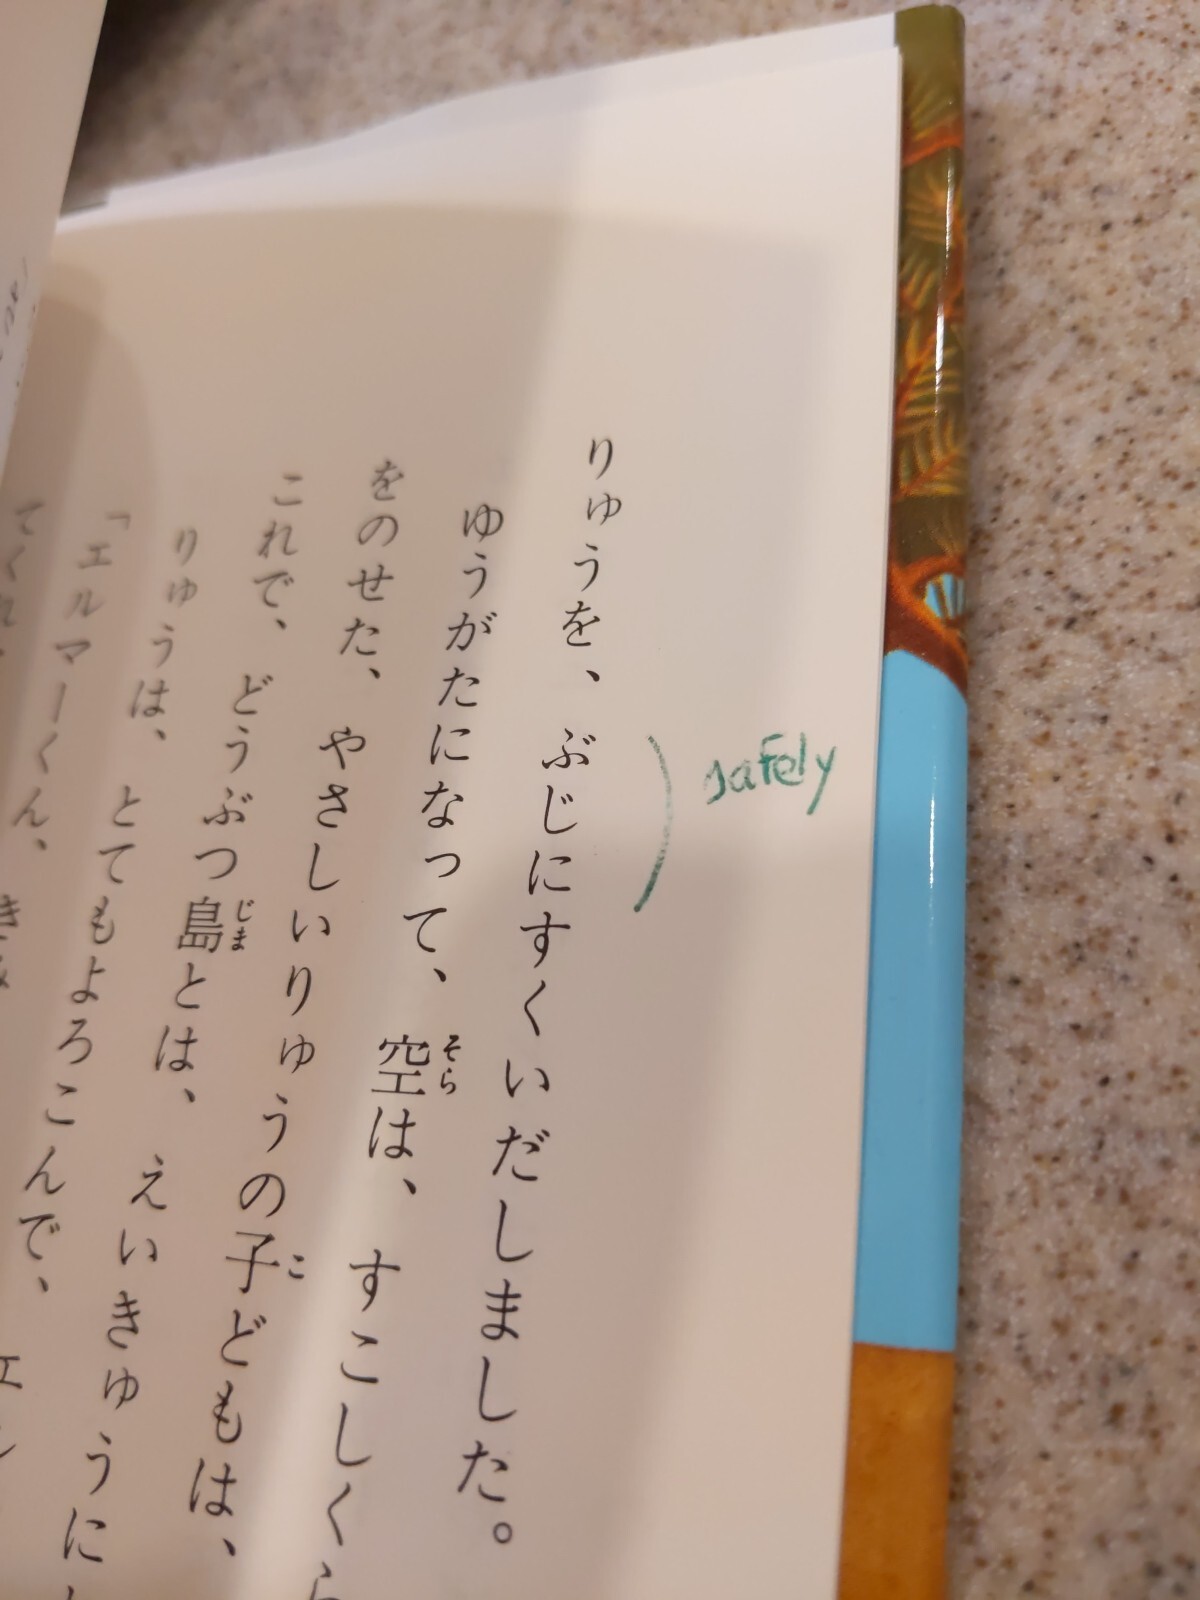 りゅうを、ぶじにすくいだしました。
safely
ゆうがたになって、空は、すこしくら
そら
をのせた、やさしいりゅうの子どもは、
こ
これで、どうぶつ島とは、えいきゅうに
じま
りゅうは、とてもよろこんで、
「エルマーくん、
てくれ